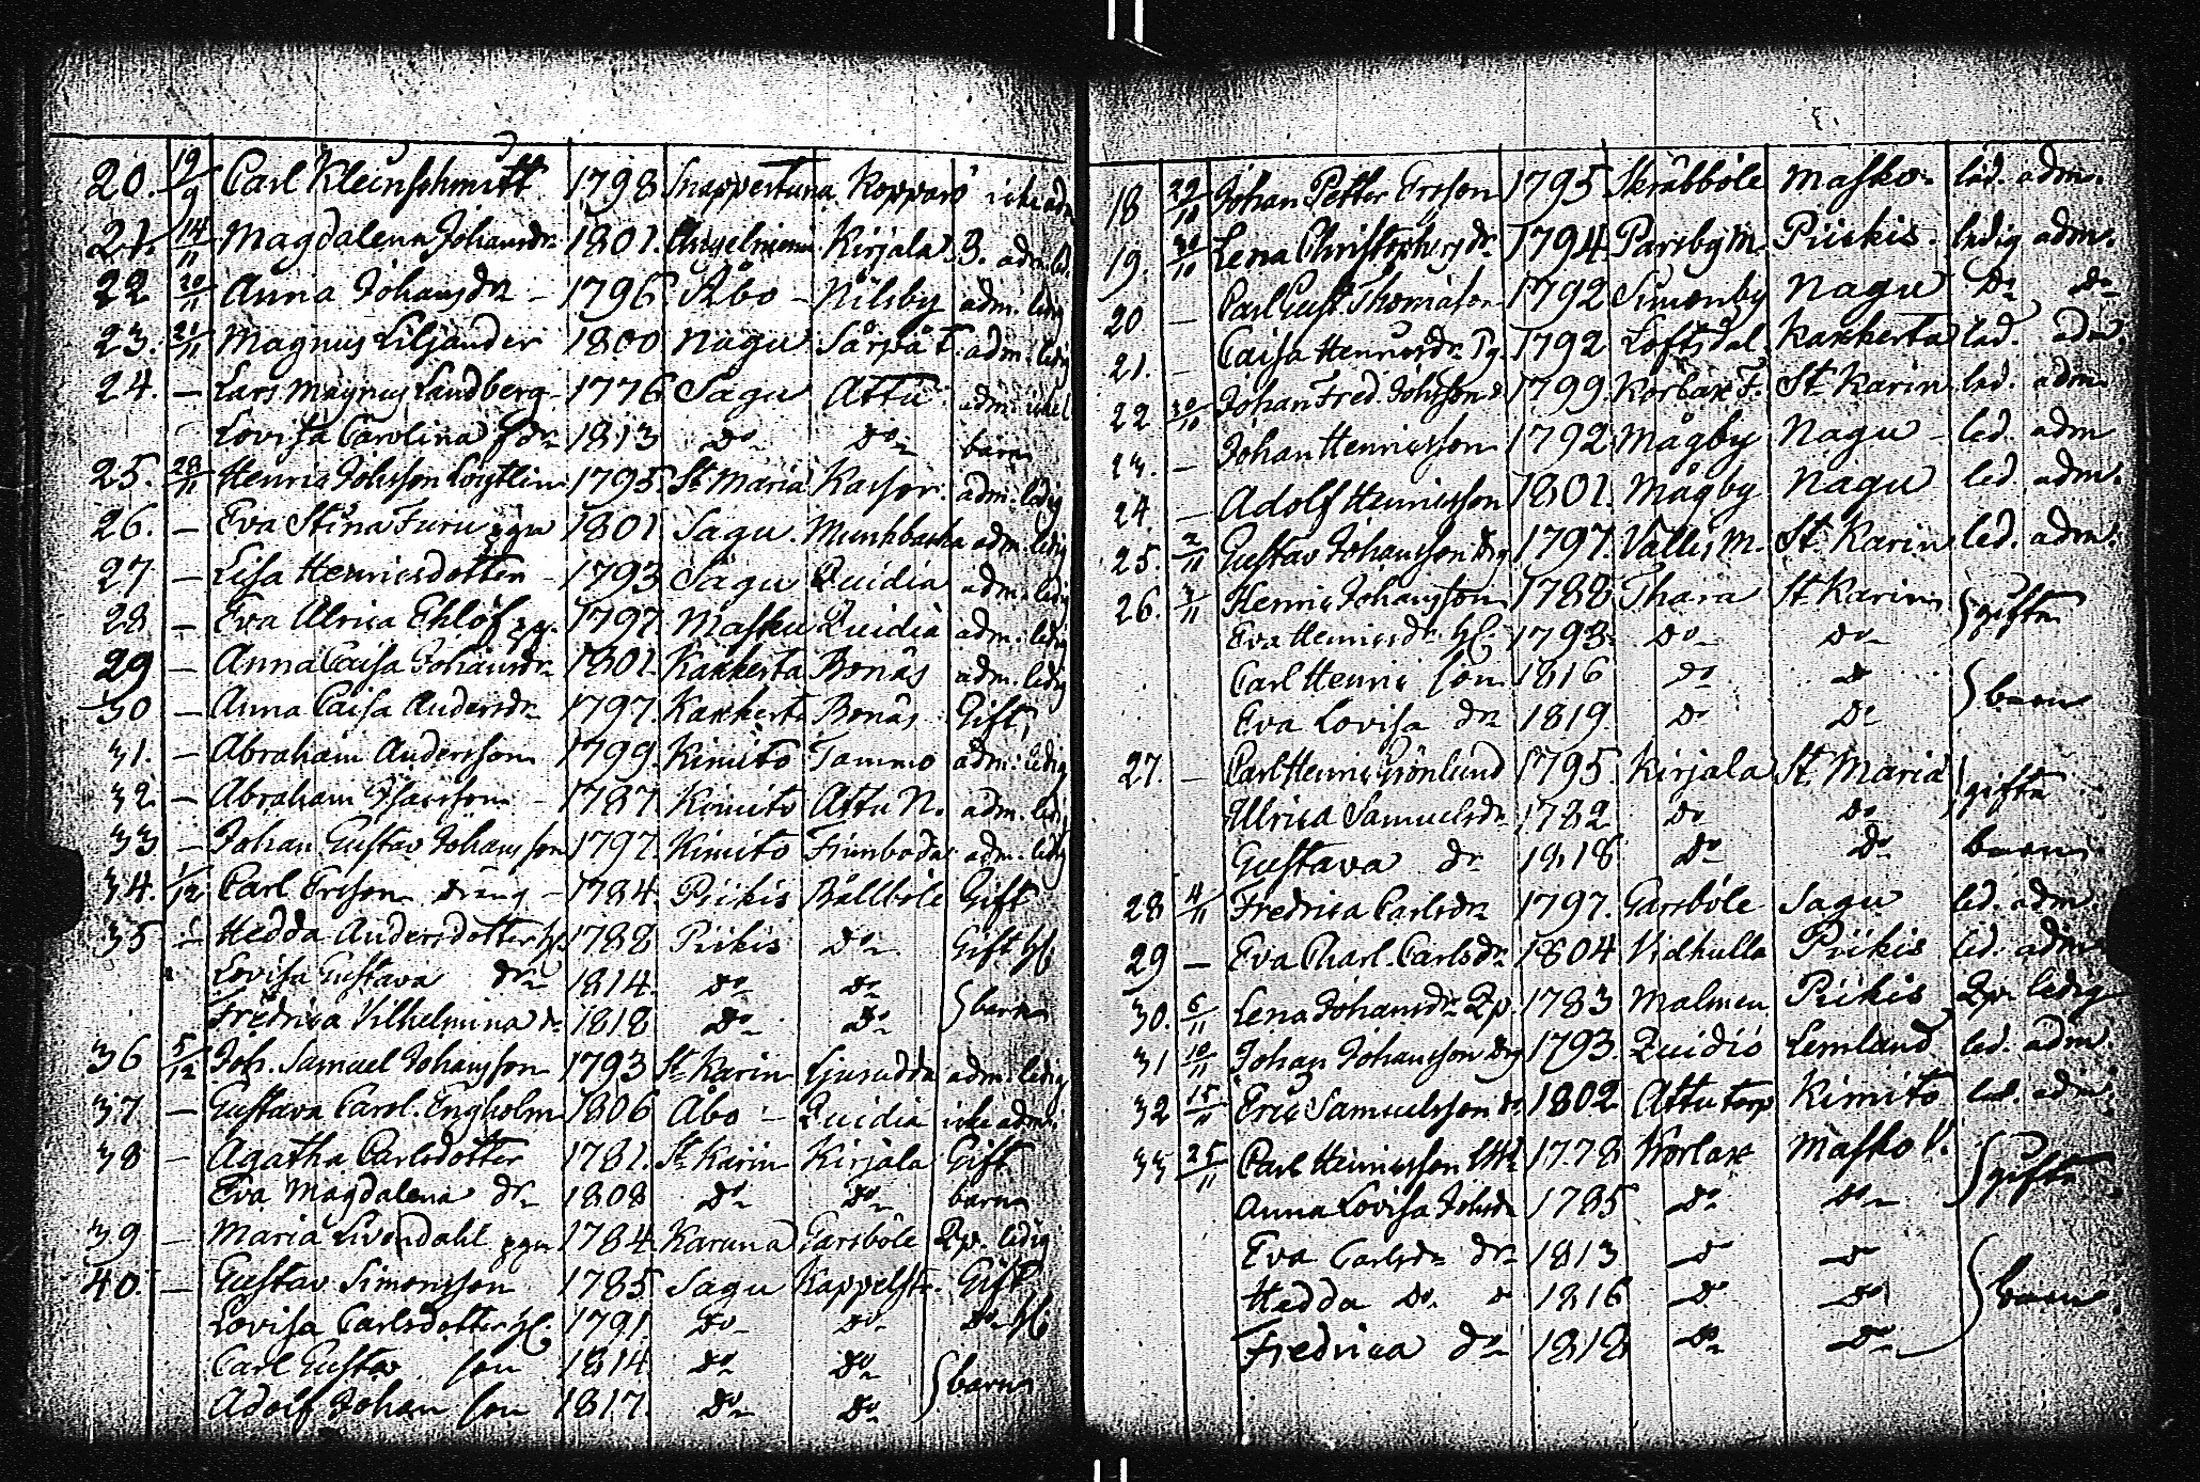 20. 19/9 Carl Kleinschmitt 1798 Snappertuna Kopparö icke adm
21. 14/11 Magdalena Johansdr 1801. Angelniemi Kirjala B. adm. led.
22 20/11 Anna Johansdr - 1796 Åbo - Nilsby adm. ledig
23. 21/11 Magnus Liljander 1800 Nagu Sårpå T. adm. ledig
24. - Lars Magnus Landberg 1776 Sagu Attu adm.
Lovisa Carolina dr 1813 do do barn
25. 28/11 Henric Johsson 1795. St Maria adm. ledig
26. - Eva Stina Furu pga 1801 Sagu. Munkbacka adm. ledig
27 - Lisa Henricsdotter - 1793 Sagu Quidia adm. ledig
28 - Eva Ulrica Ehlöf pg. 1797. Masku Quidia adm. ledig
29 - Anna Caisa Johansdr 1801. Kakkerta Bonäs adm. ledig
30 - Anna Caisa Andersdr 1797. Kakkerta Bonäs Gift,
31. - Abraham Andersson 1799. Kimito Tammo adm. ledig
32. - Abraham Isacsson - 1787. Kimito Attu N. adm. ledig
33 - Johan Gustav Johansson 1797. Kimito Fimboda adm. ledig
34. 1/12 Carl Ersson dräng - 1784. Piikis Bällböle Gift
35 - Hedda Andersdotter h. 1788 Piikis do Gift h.
Lovisa Gustava dr 1814. do do } barn
Fredrica Vilhelmina dr 1818 do do
36 5/12 Joh. Samuel Johansson 1793 St Karin Ljusudda adm. ledig
37. - Gustava Carol. Engholm 1806 Åbo - Quidia icke adm.
38 - Agatha Carlsdotter 1781. St Karin Kirjala Gift
Eva Magdalena dr 1808 do do barn
39 - Maria Livendahl pga 1784. Karuna Garsböle Qp. ledig
40. - Gustav Simonsson 1785. Sagu Kappelstr. Gift
Lovisa Carlsdotter h. 1791. do do do h.
Carl Gustav son 1814. do do } barn
Adolf Johan son 1817. do do
18 29/10 Johan Petter Ersson 1795. Skräbböle Masko led. adm.
19. 30/10 Lena Christophersdr 1794 Parsby M. Piikis. ledig adm.
20 - Carl Gust. Thomasson 1792 Simonby Nagu do do
21. - Caisa Henricsdr Pg. 1792 Loftsdal Kakkerta led. adm.
22 30/10 Johan Fred. Johsson d. 1799. Korlax F. St Karin led. adm
23. - Johan Henricsson 1792. Mågby Nagu - led. adm
24 - Adolf Henricsson 1801. Mågby Nagu led. adm.
25. 2/11 Gustav Johansson drg 1797. Vallis M. St Karin led. adm.
26. 3/11 Henric Johansson 1788 Thara St Karin } gifta
Eva Henricsdr h. 1793. do do
Carl Henric son 1816 do do } barn
Eva Lovisa dr 1819. do do
27. - Carl Henric Grönlund 1795. Kirjala St Maria } gifta
Ulrica Samuelsdr 1782 do do
Gustava dr 1818 do do barn
28 4/11 Fredrica Carlsdr 1797. Garsböle Sagu led. adm.
29 - Eva Charl. Carlsdr 1804 Vidhulla Piikis led. adm
30. 6/11 Lena Johansdr Qp. 1783 Malmen Piikis Qp. ledig
31 10/11 Johan Johansson drg 1793. Quidiö Lemland led. adm.
32 15/11 Eric Samuelsson d. 1802 Attu torp Kimito led. adm.
33 25/11 Carl Henricsson 1778 Korlax Masko V. } gifta
Anna Lovisa Johsdr 1785 do do
Eva Carlsdr dr 1813 do do } barn
Hedda do d 1816 do do
Fredrica dr 1818 do do